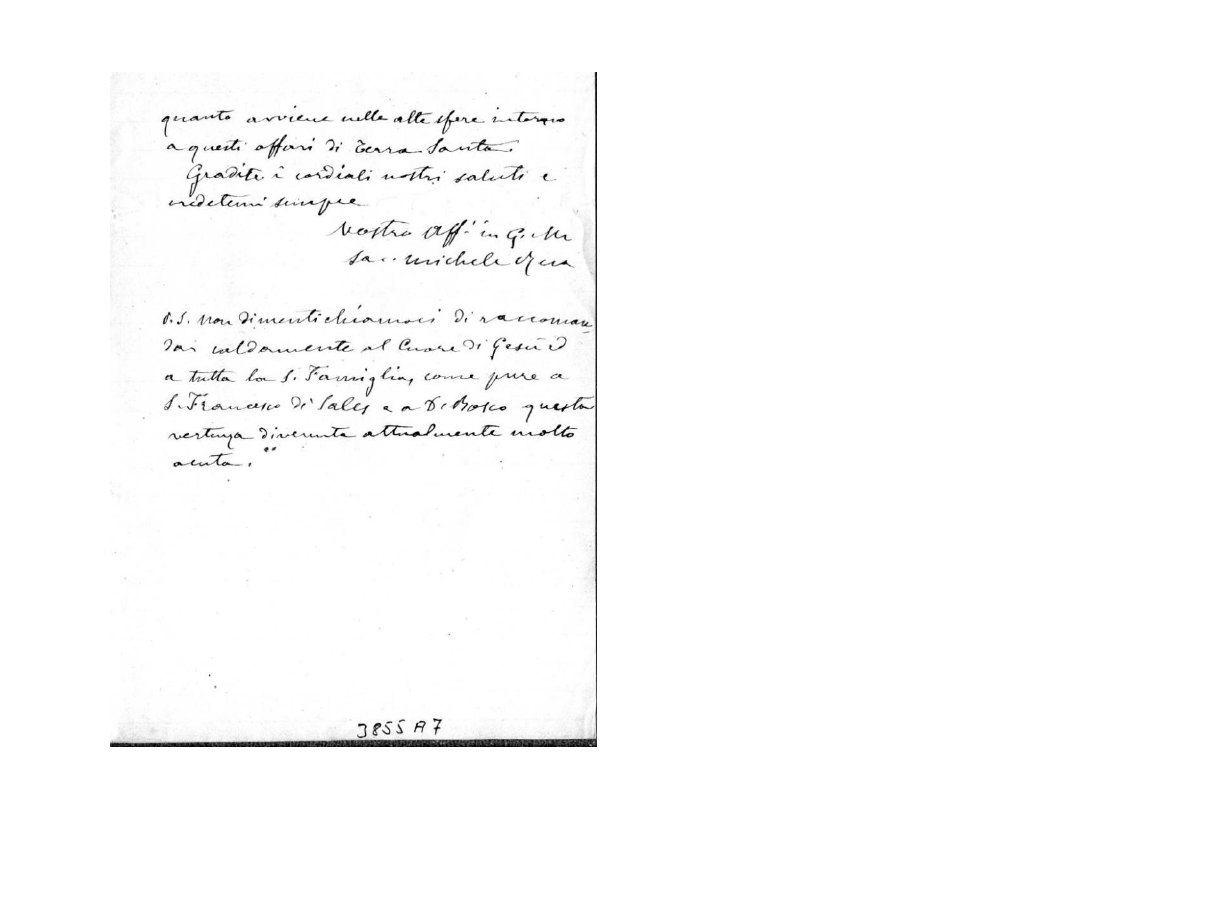 quanto avviene nelle alte sfere intorno
a questi affari di Terra Santa.
Gradite i cordiali nostri saluti e
credetemi sempre
Vostro Aff. in G. e M
Sac. Michele Rua
P.S. Non dimentichiamoci di raccoman
dar caldamente al Cuore di Gesù
a tutta la S. Famiglia, come pure a
S. Francesco di Sales e a D. Bosco questa
vertenza divenuta attualmente molto
acuta.
3855 A7